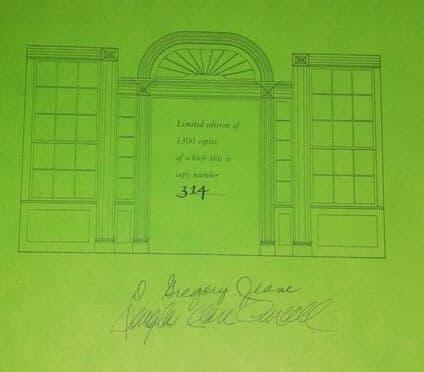 Limited edition of
1300 copies,
of which this is
copy number
314
D. Gregory Jeane
Douglas Clare Purcell